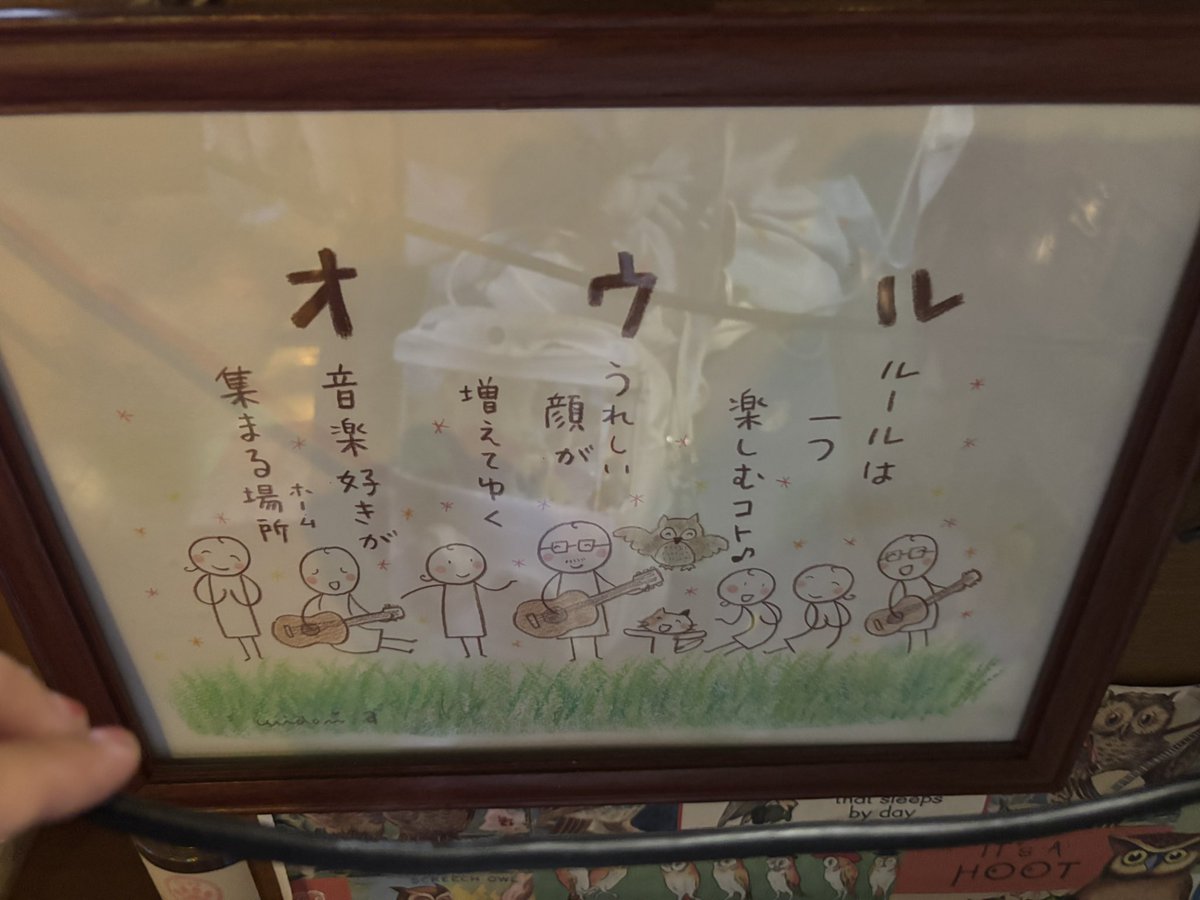 オ ウ ル
音楽好きが
集まる場所
ホーム
うれしい
顔が
増えてゆく
ルールは
一つ
楽しむコト♪
that sleeps
by day
SCREECH OWL
IT'S A
HOOT